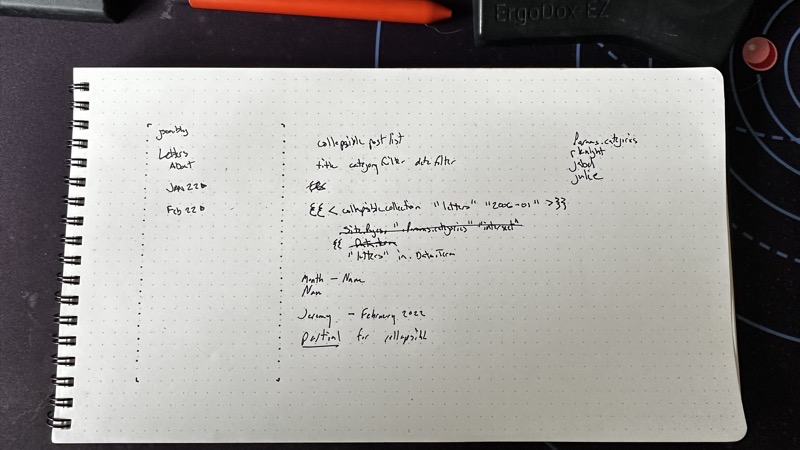 ErgoDox EZ
possibly
Letters
ADAT
JAN 22
Feb 22
collapsible post list
title category filter date filter
{{< collapsible.collection "letters" "2006-01" >}}
Site.Pages, "Params.categories" "intersect"
{{ Data.Term
"letters" in .Data.Term
Month - Name
Nam
Jeremy - February 2022
Partial for collapsible
Params.categories
rknight
julie